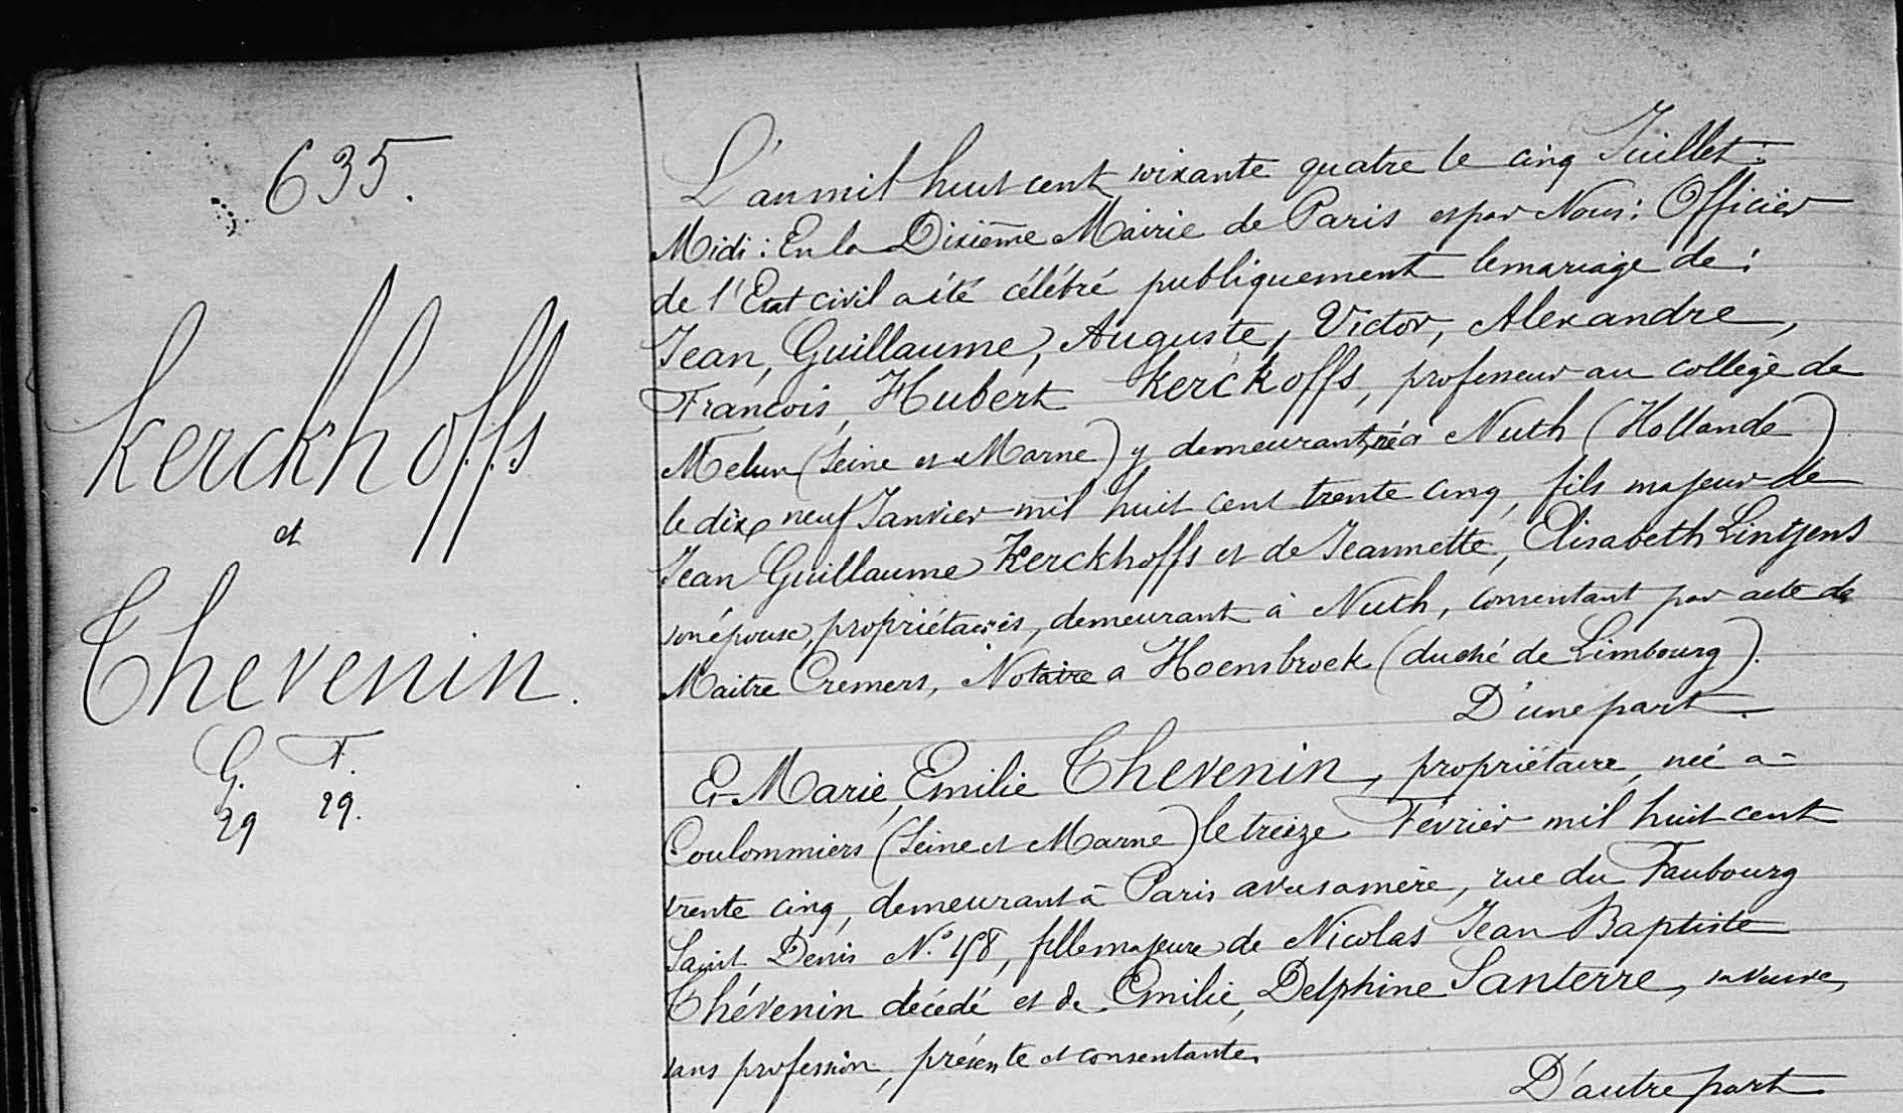 635.
Kerckhoffs
et
Thevenin.
G. F.
29 29.
L'an mil huit cent soixante quatre le cinq Juillet :
Midi : En la Dixième Mairie de Paris et par Nous : Officier
de l'Etat civil a été célébré publiquement le mariage de :
Jean, Guillaume, Auguste, Victor, Alexandre,
François, Hubert Kerckhoffs, professeur au collège de
Melun (Seine et Marne) y demeurant, né à Nuth (Hollande)
le dix neuf Janvier mil huit cent trente cinq, fils majeur de
Jean Guillaume Kerckhoffs et de Jeannette, Elisabeth Lintjens
son épouse, propriétaires, demeurant à Nuth, consentant par acte de
Maitre Cremers, Notaire a Hoensbroek (duché de Limbourg).
D'une part.
Et Marie, Emilie Thevenin, propriétaire, née a
Coulommiers (Seine et Marne) le treize Février mil huit cent
trente cinq, demeurant à Paris avec sa mère, rue du Faubourg
Saint Denis N.° 148, fille majeure de Nicolas Jean Baptiste
Thévenin décédé et de Emilie, Delphine Santerre, sa veuve,
sans profession, présente et consentante,
D'autre part